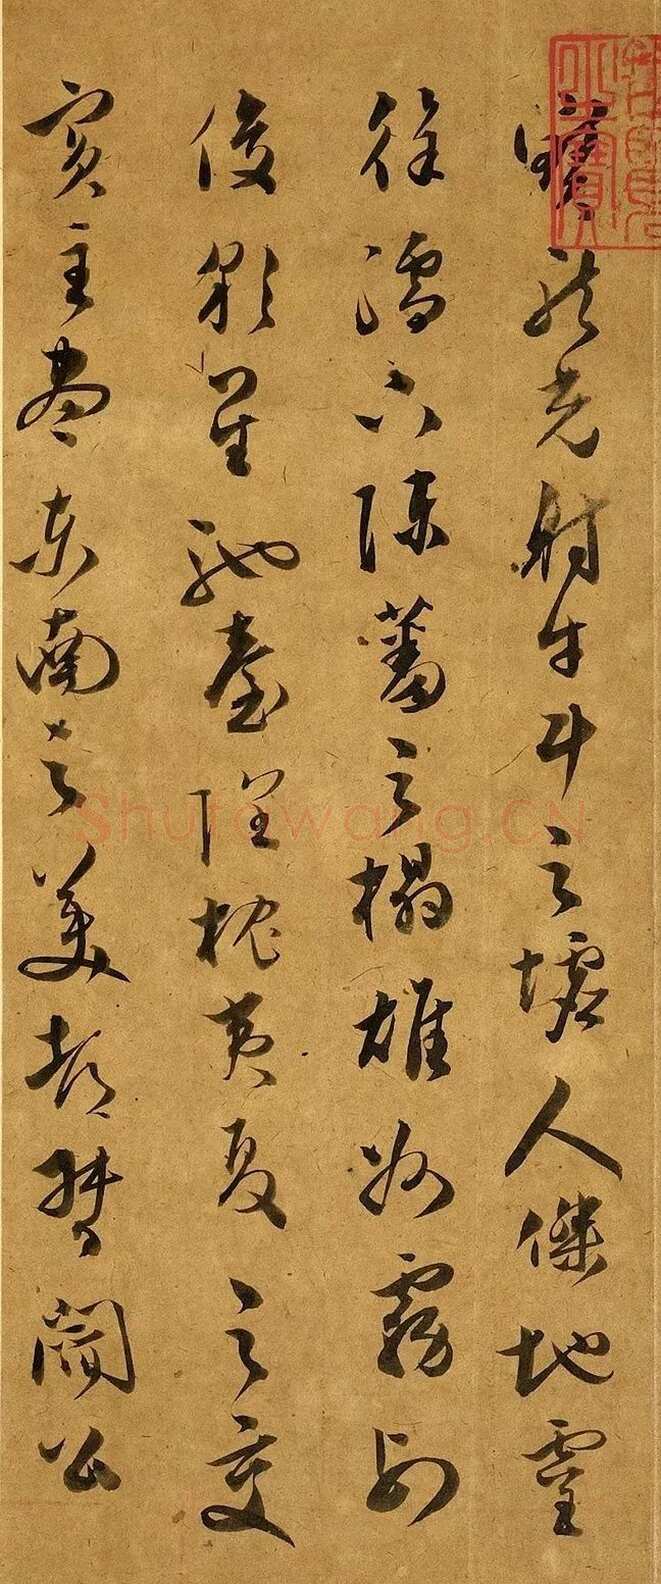 寶龍光射牛斗之墟人傑地靈
徐孺下陳蕃之榻雄州霧列
俊彩星馳臺隍枕夷夏之交
賓主盡東南之美都督閻公
Shufawang.CN